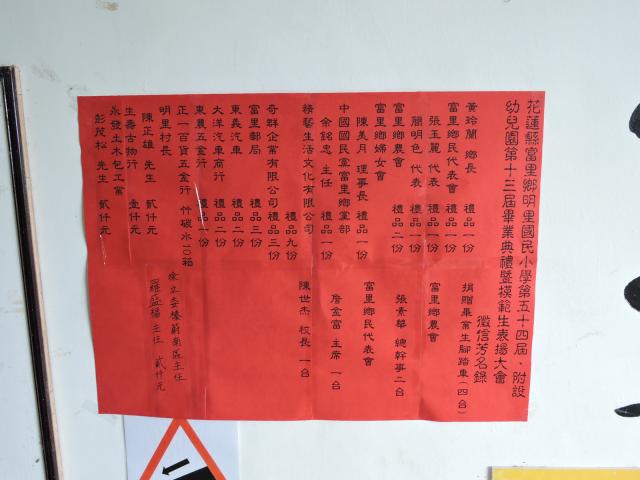 花蓮縣富里鄉明里國民小學第五十四屆．附設
幼兒園第十三屆畢業典禮暨模範生表揚大會
徵信芳名錄
黃玲蘭 鄉長 禮品一份
富里鄉民代表會 禮品一份
張玉麗 代表 禮品一份
簡明色 代表 禮品一份
富里鄉農會 禮品二份
富里鄉婦女會
陳美月 理事長 禮品一份
中國國民黨富里鄉黨部
余銘忠 主任 禮品一份
精藝生活文化有限公司
禮品九份
奇群企業有限公司 禮品三份
富里郵局 禮品三份
東義汽車 禮品二份
大洋汽車商行 禮品二份
東農五金行 禮品一份
正一百貨五金行 竹碳水20箱
明里村長
陳正雄 先生 貳仟元
生壽古物行 壹仟元
永發土木包工業
彭茂松 先生 貳仟元
捐贈畢業生腳踏車(四台)
富里鄉農會
張素華 總幹事二台
富里鄉民代表會
詹金富 主席 一台
陳世杰 校長 一台
徐立委榛蔚南區主任
羅盛楊主任 貳仟元